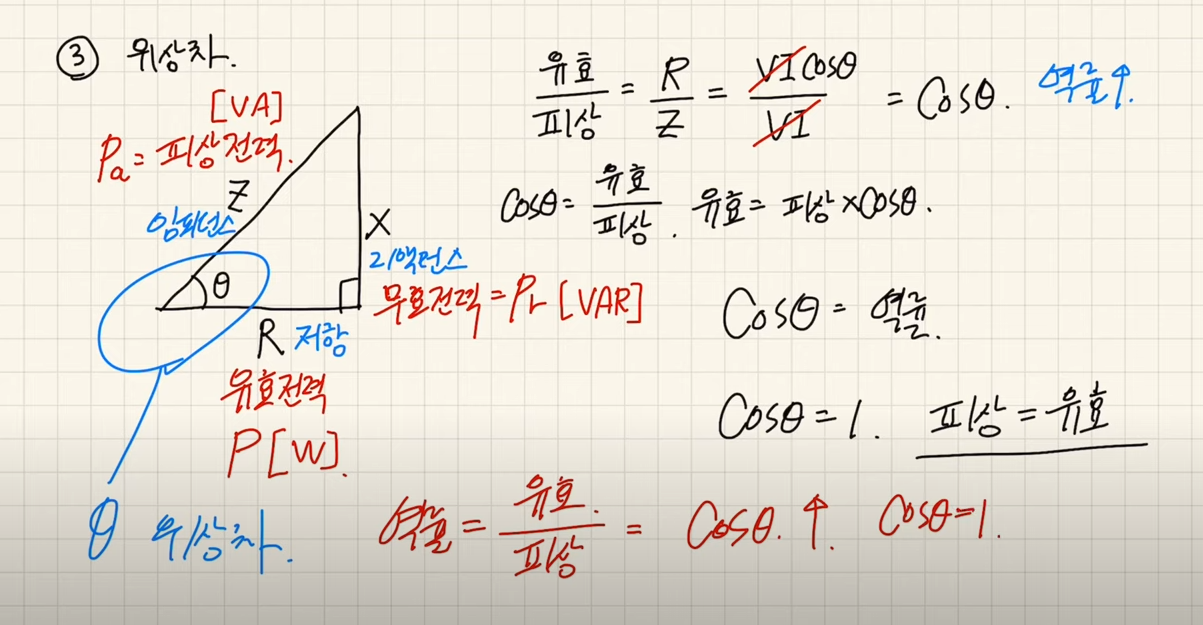 ③ 위상차.
[VA]
Pa = 피상전력.
Z
임피던스
θ
X
리액턴스
무효전력 = Pr [VAR]
R 저항
유효전력
P [W].
θ 위상차.
유효/피상 = R/Z = VI cosθ/VI = cosθ. 역률↑.
cosθ = 유효/피상. 유효 = 피상 × cosθ.
cosθ = 역률.
cosθ = 1. 피상 = 유효
역률 = 유효./피상 = cosθ.↑. cosθ=1.